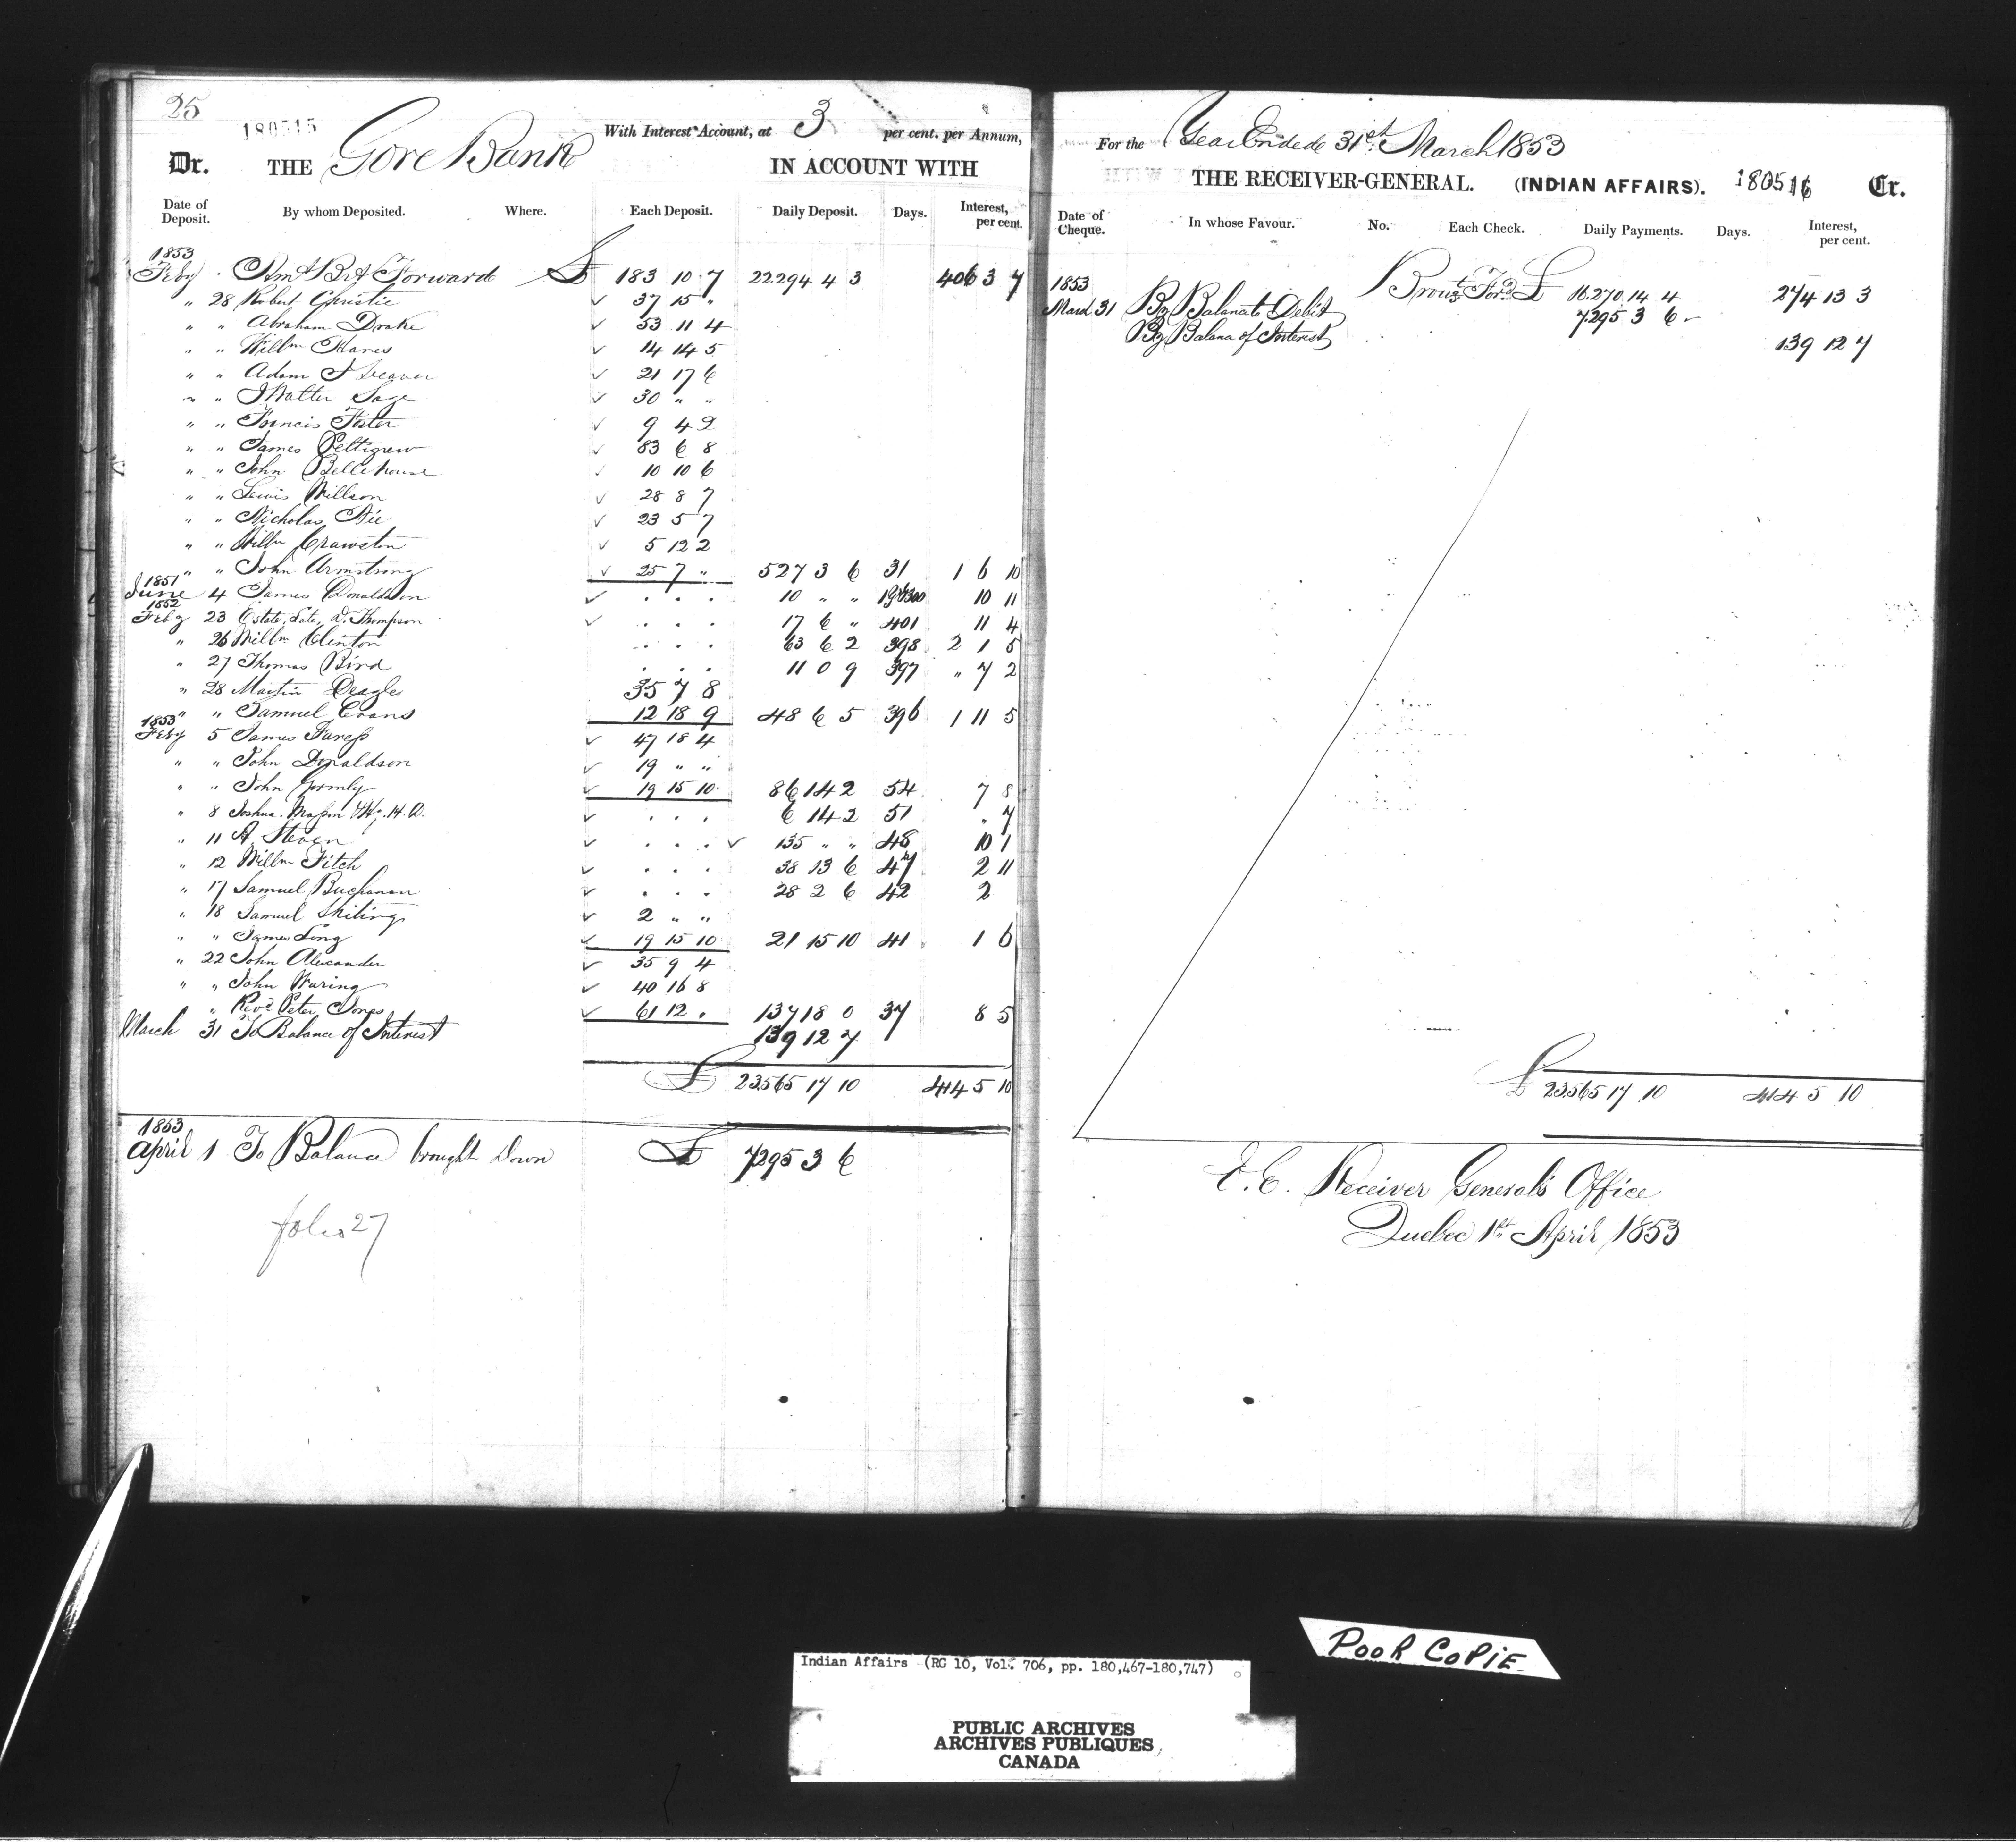 25
180515
With Interest Account, at 3 per cent. per Annum,
Dr. THE Gore Bank IN ACCOUNT WITH
Date of Deposit. By whom Deposited. Where. Each Deposit. Daily Deposit. Days. Interest, per cent.
1853
Feby Amt Brt Forward £ 183 10 7 22.294 4 3 406 3 7
" 28 Robert Christie 37 15 "
" " Abraham Drake 53 11 4
" " Willm 14 14 5
" " Adam 21 17 6
" " Walter Sage 30 " "
" " Francis Foster 9 4 2
" " James Pettigrew 83 6 8
" " John Bellehouse 10 10 6
" " Lewis Willson 28 8 7
" " Nicholas 23 5 7
" " Willm Crawston 5 12 2
" " John Armstrong 25 7 " 527 3 6 31 1 6 10
1851
June 4 James Donaldson . . . 10 " " 10 11
1852
Feby 23 Estate, Late, D. Thompson . . . 17 6 " 401 11 4
" 26 Willm Clinton . . . 63 6 2 398 2 1 5
" 27 Thomas Bird . . . 11 0 9 397 " 7 2
" 28 Martin Deagle 35 7 8
" " Samuel Evans 12 18 9 48 6 5 396 1 11 5
1853
Feby 5 James 47 18 4
" " John Donaldson 19 " "
" " John Gormly 19 15 10 86 14 2 54 7 8
" 8 Joshua . . . 6 14 2 51 " 7
" 11 A. Steven . . . 135 " " 48 10 1
" 12 Willm Fitch . . . 38 13 6 47 2 11
" 17 Samuel Buchanan . . . 28 2 6 42 2
" 18 Samuel 2 " "
" " James 19 15 10 21 15 10 41 1 6
" 22 John Alexander 35 9 4
" " John Waring 40 16 8
" Revd Peter Jones 61 12 . 137 18 0 37 8 5
March 31 To Balance of Interest 139 12 7
£ 23565 17 10 414 5 10
1853
April 1 To Balance brought Down £ 7295 3 6
folio 27
For the Year Ended 31st March 1853
THE RECEIVER-GENERAL. (INDIAN AFFAIRS). 180516 Cr.
Date of Cheque. In whose Favour. No. Each Check. Daily Payments. Days. Interest, per cent.
1853 Brout Ford £ 16.270 14 4 274 13 3
March 31 By Balance to Debit 7295 3 6
By Balance of Interest 139 12 7
£ 23565 17 10 414 5 10
E. E. Receiver General's Office
Quebec 1st April 1853
POOR COPIE
Indian Affairs (RG 10, Vol. 706, pp. 180,467-180,747)
PUBLIC ARCHIVES
ARCHIVES PUBLIQUES
CANADA